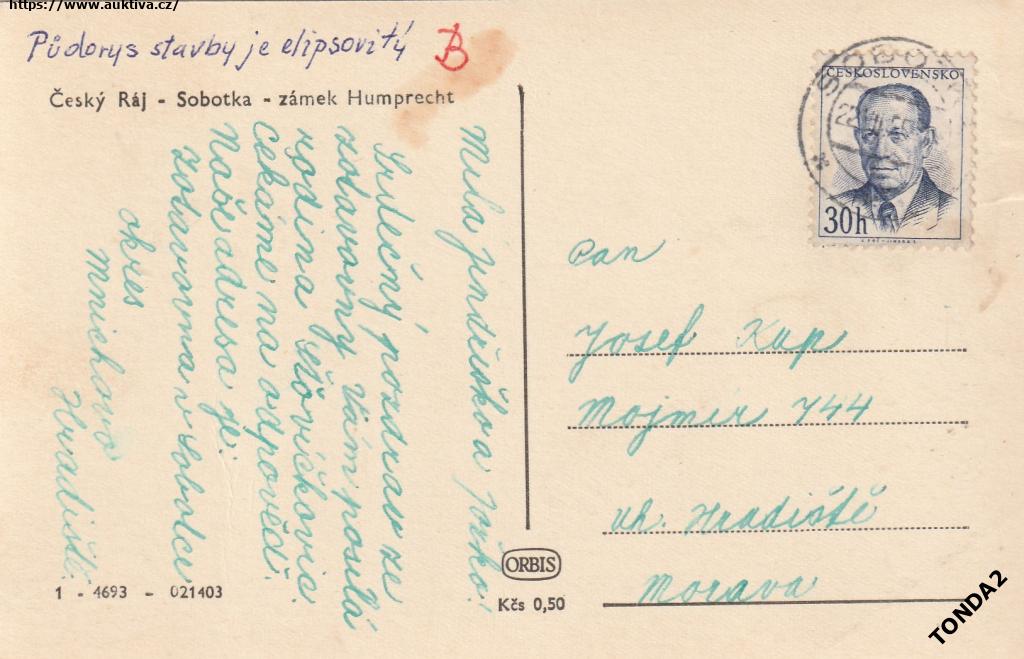 https://www.auktiva.cz/
Půdorys stavby je elipsovitý B
Český Ráj - Sobotka - zámek Humprecht
Milá jindřiško a jožko!
Srdečný pozdrav ze
zotavovny Vám posílá
rodina
Čekáme na odpověď.
Naše adresa je:
zotavovna v Sobotce
okres
Mnichovo
Hradiště.
1 - 4693 - 021403
ORBIS
Kčs 0,50
ČESKOSLOVENSKO
30h
SOBOTKA
Pan
Josef Kap
Mojmir 744
uh. Hradiště
Morava
TONDA2